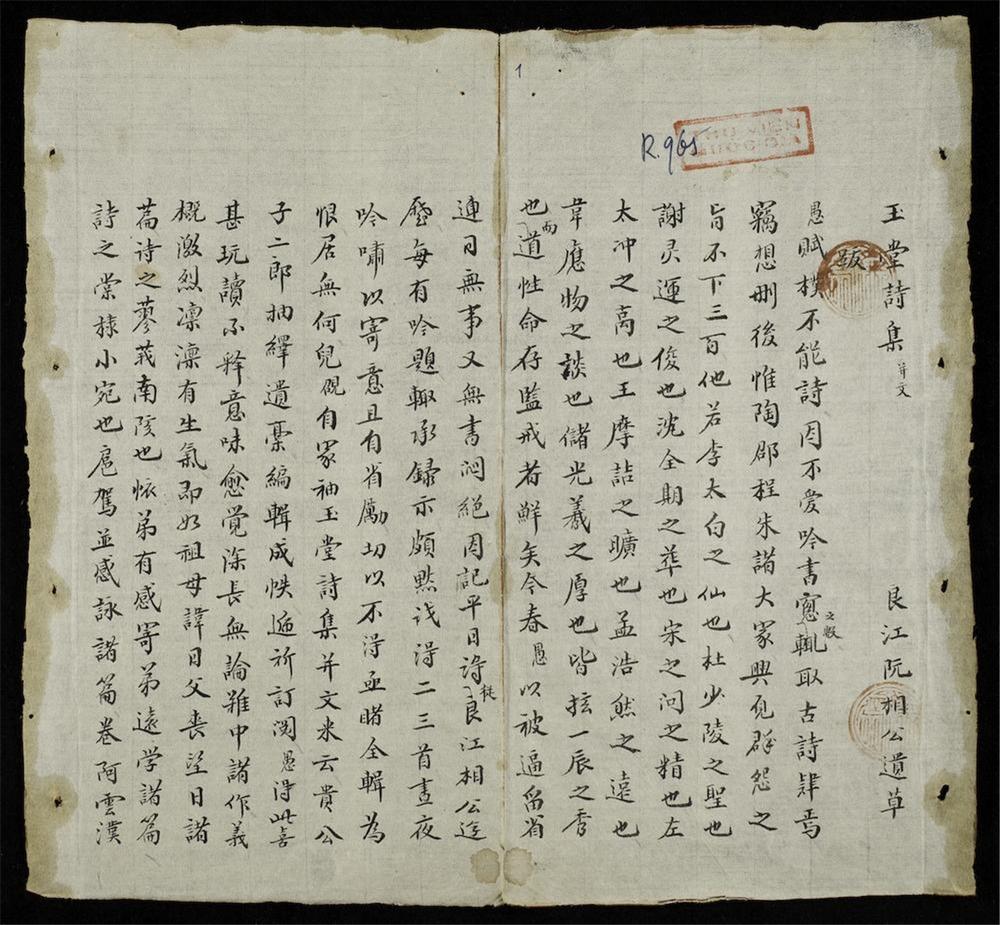 1
R.965
THƯ VIỆN
QUỐC GIA
玉堂詩集并文 良江阮相公遺草
跋
愚賦樸不能詩因不愛吟書窓之暇輒取古詩肄焉
竊想刪後惟陶邵程朱諸大家興見群怨之
旨不下三百他若李太白之仙也杜少陵之聖也
謝灵運之俊也沈全期之華也宋之问之精也左
太冲之高也王摩詰之曠也孟浩然之遠也
韋應物之談也儲光羲之厚也皆擅一辰之秀
也而道性命存監戒者鮮矣今春愚以被逼畱省
連日無事又無書闷絕因記平日詩徒良江相公遊
歷每有吟題輒承録示頗默识得二三首晝夜
吟嘯以寄意且有省勵切以不得亟睹全輯為
恨居無何兒覬自家袖玉堂詩集并文來云貴公
子二郎抽繹遺稾編輯成帙遞祈訂閱愚得此喜
甚玩讀不釋意味愈覺深長無論雅中諸作義
概激烈凛凛有生氣即如祖母諱日父喪望日諸
篇詩之蓼莪南陔也懷弟有感寄弟遠学諸篇
詩之棠棣小宛也扈駕並感詠諸篇卷阿雲漢